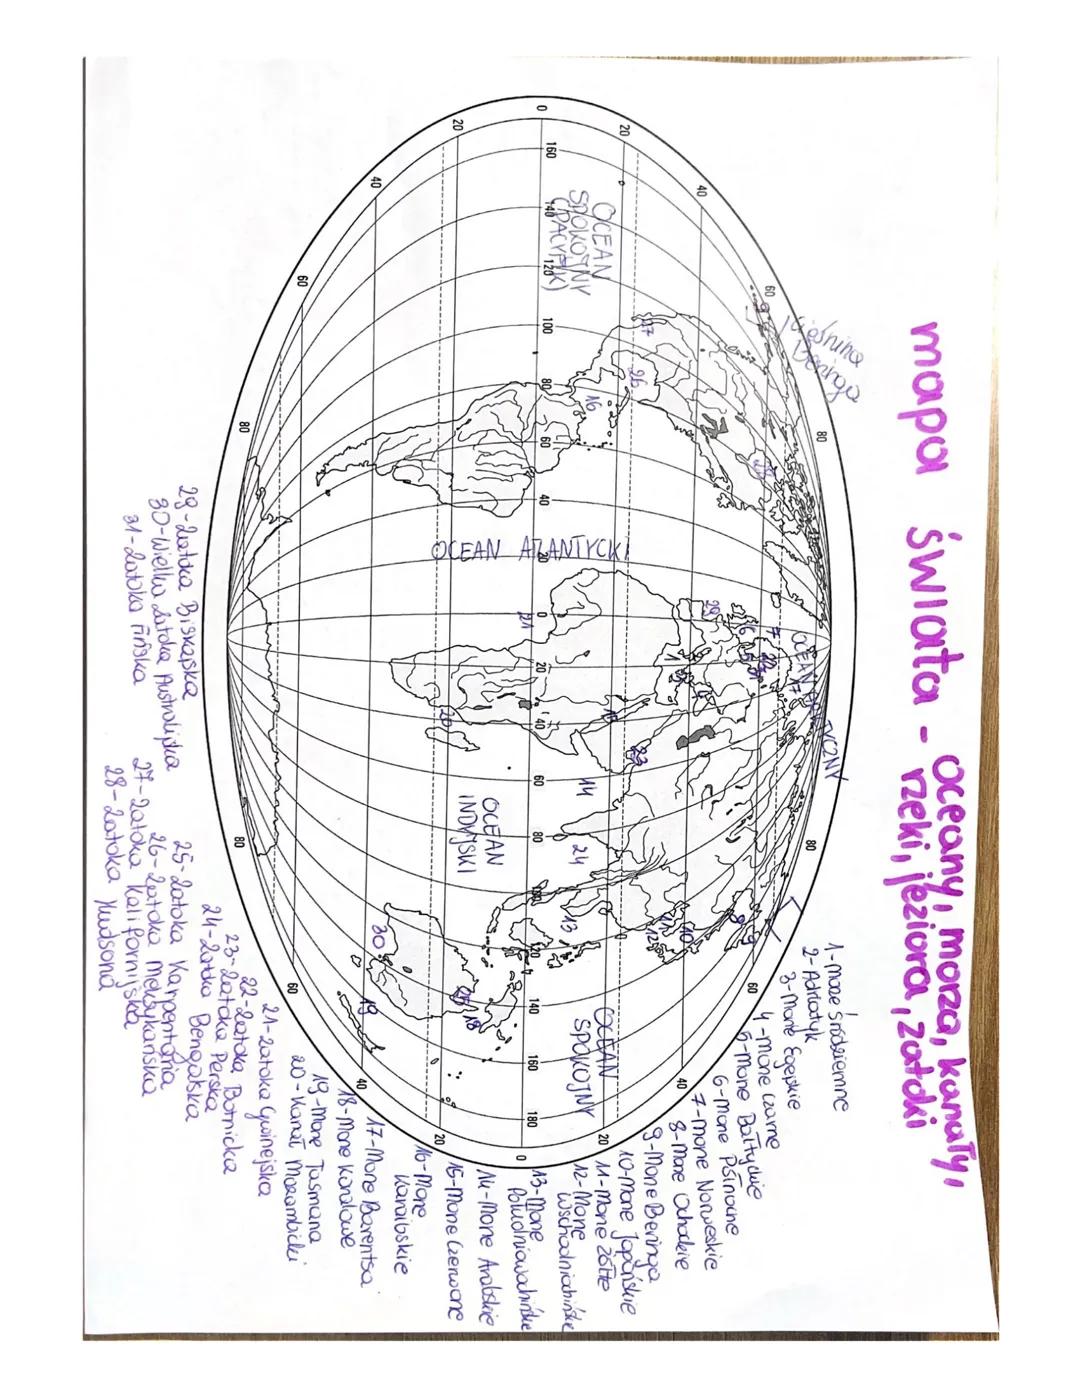 mapa świata - oceany, morza, kanały,
rzeki, jeziora, zatoki
cieśnina
Beringa
OCEAN
SPOKOJNY
(PACYFIK)
OCEAN ATLANTYCKI
OCEAN ARKTYCZNY
OCEAN
INDYJSKI
OCEAN
SPOKOJNY
1-morze śródziemne
2-Adriatyk
3-Morze Egejskie
4-Morze czarne
5-Morze Bałtyckie
6-Morze Północne
7-Morze Norweskie
8-Morze Ochockie
9-Morze Beringa
10-Morze Japońskie
11-Morze żółte
12-Morze
Wschodniochińskie
13-Morze
Południowochińskie
14-Morze Arabskie
15-Morze Czerwone
16-Morze
Karaibskie
17-Morze Barentsa
18-Morze Koralowe
19-Morze Tasmana
20-Kanał Mozambicki
21-zatoka Gwinejska
22-zatoka Botnicka
23-zatoka Perska
24-zatoka Bengalska
25-zatoka Karpentaria
26-zatoka Meksykańska
27-zatoka Kalifornijska
28-zatoka Hudsona
29-zatoka Biskajska
30-Wielka zatoka Australijska
31-zatoka Fińska
0
20
40
60
80
160
140
120
100
80
60
40
20
0
20
40
60
80
100
120
140
160
180